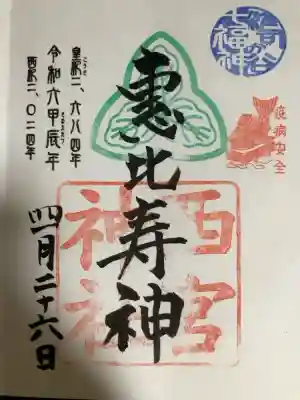 七福神
疫病安全
西宮
神社
惠比寿神
皇紀二、六八四年
令和六甲辰年
西紀二、〇二四年
四月二十六日